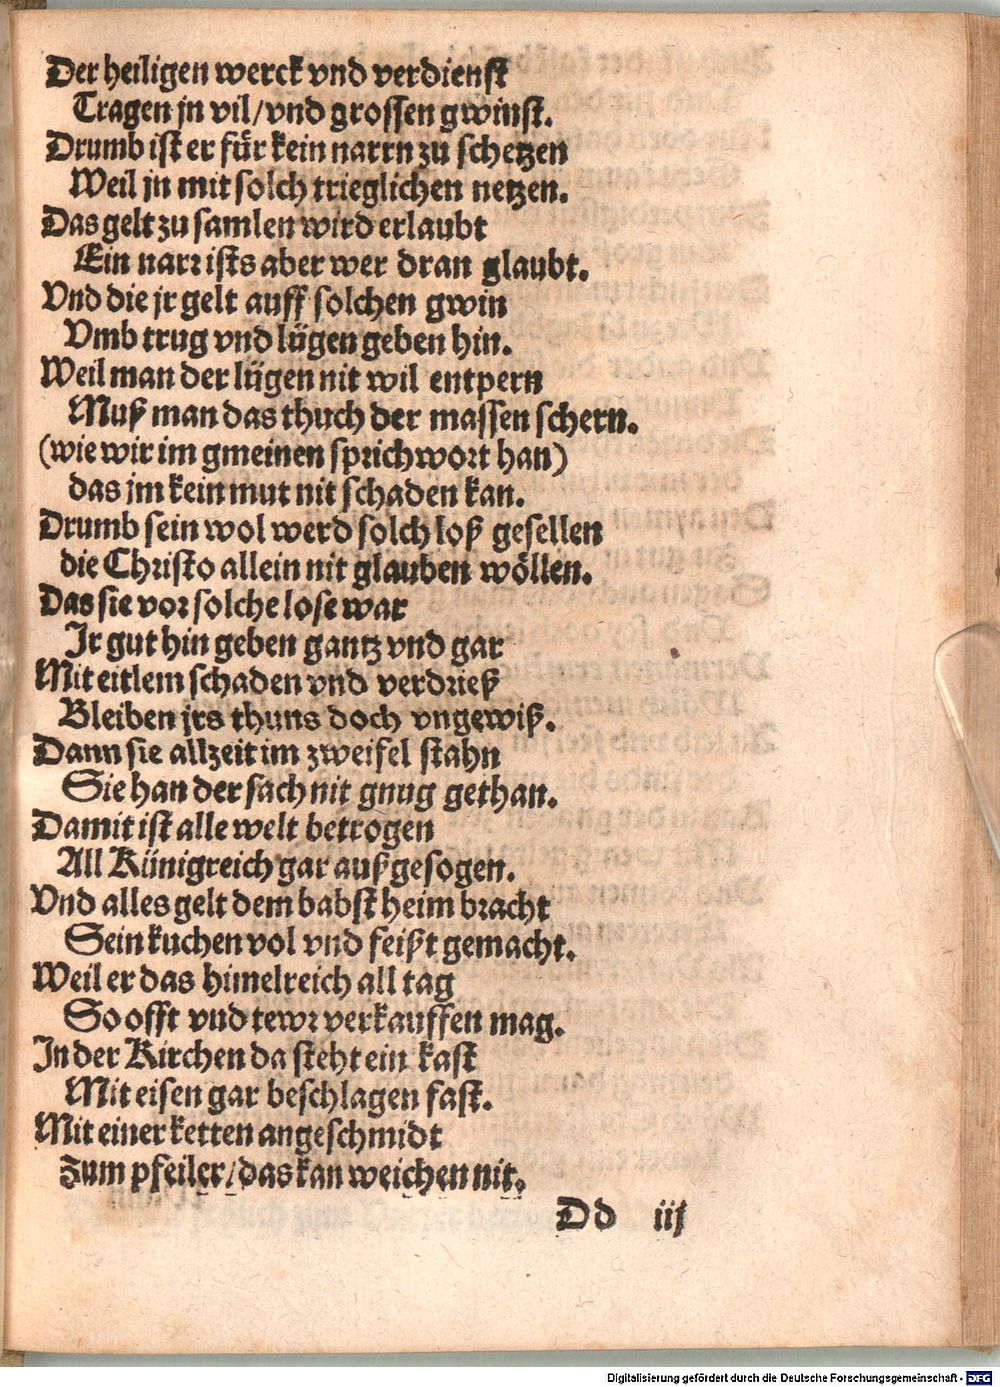 Der heiligen werck vnd verdienst
Tragen jn vil/vnd grossen gwinst.
Drumb ist er für kein narrn zu schetzen
Weil jn mit solch trieglichen netzen.
Das gelt zu samlen wird erlaubt
Ein narr ists aber wer dran glaubt.
Vnd die jr gelt auff solchen gwin
Vmb trug vnd lügen geben hin.
Weil man der lügen nit wil entpern
Muß man das thuch der massen schern.
(wie wir im gmeinen sprichwort han)
das jm kein mut nit schaden kan.
Drumb sein wol werd solch loß gesellen
die Christo allein nit glauben wöllen.
Das sie vor solche lose war
Jr gut hin geben gantz vnd gar
Mit eitlem schaden vnd verdrieß
Bleiben jrs thuns doch vngewiß.
Dann sie allzeit im zweifel stahn
Sie han der sach nit gnug gethan.
Damit ist alle welt betrogen
All Künigreich gar außgesogen.
Vnd alles gelt dem babst heim bracht
Sein kuchen vol vnd feißt gemacht.
Weil er das himelreich all tag
So offt vnd tewr verkauffen mag.
In der Kirchen da steht ein kast
Mit eisen gar beschlagen fast.
Mit einer ketten angeschmidt
Zum pfeiler/das kan weichen nit.
Dd iij
Digitalisierung gefördert durch die Deutsche Forschungsgemeinschaft - DFG